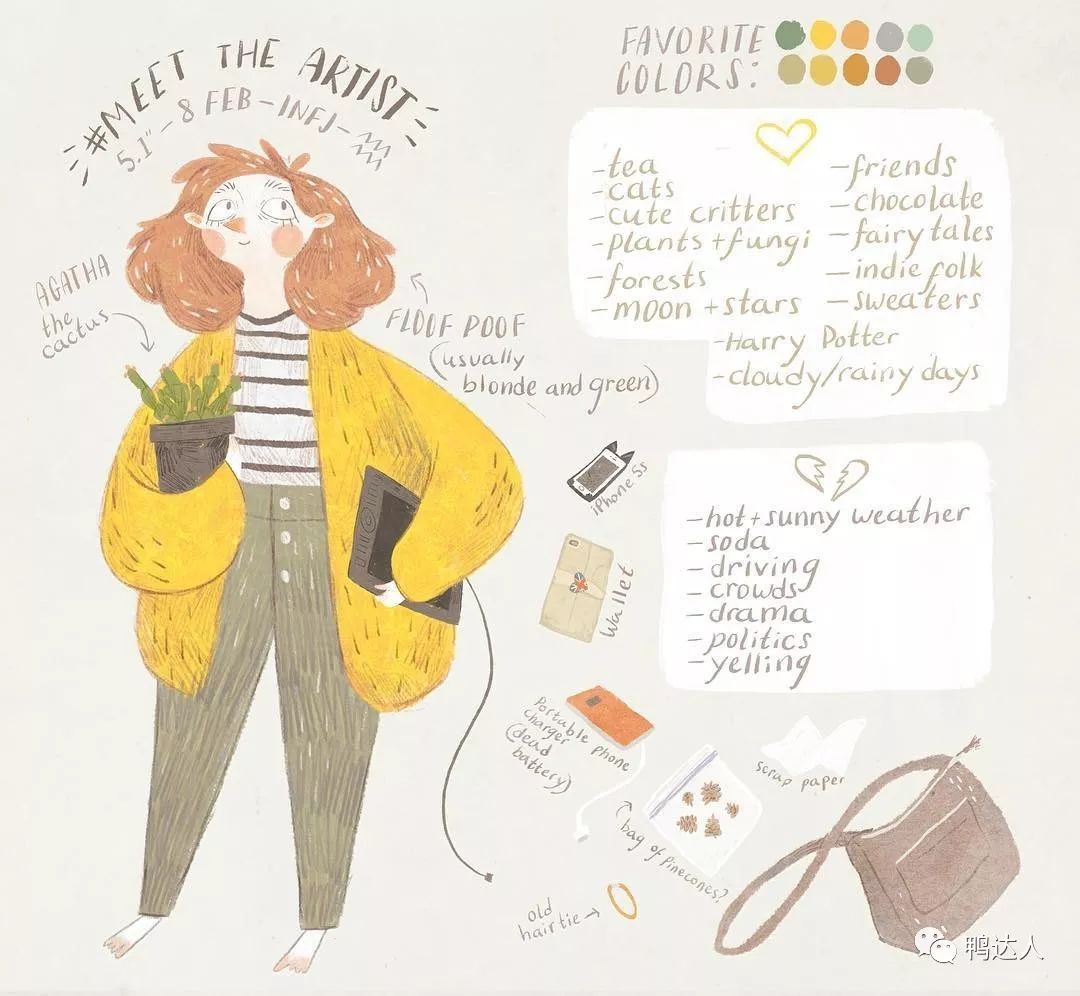 #MEET THE ARTIST
5.1" - 8 FEB - INFJ -
FAVORITE
COLORS:
AGATHA
the
cactus
FLOOF POOF
(usually
blonde and green)
-tea
-cats
-cute critters
-plants + fungi
-forests
-moon + stars
-friends
-chocolate
-fairy tales
-indie folk
-sweaters
-Harry Potter
-cloudy/rainy days
iPhone 5s
Wallet
-hot + sunny weather
-soda
-driving
-crowds
-drama
-politics
-yelling
Portable phone
charger
(dead
battery)
scrap paper
bag of pinecones?
old
hairtie
鸭达人